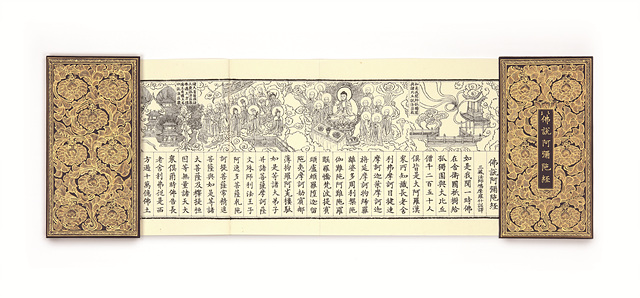 佛說阿彌陀經
佛說阿彌陀經
三藏法師鳩摩羅什譯
如是我聞一時佛
在舍衛國祇樹給
孤獨園與大比丘
僧千二百五十人
俱皆是大阿羅漢
眾所知識長老舍
利弗摩訶目犍連
摩訶迦葉摩訶迦
旃延摩訶拘絺羅
離婆多周利槃陀
伽難陀阿難陀羅
睺羅憍梵波提賓
頭盧頗羅墮迦留
陀夷摩訶劫賓那
薄拘羅阿㝹樓馱
如是等諸大弟子
并諸菩薩摩訶薩
文殊師利法王子
阿逸多菩薩乾陀
訶提菩薩常精進
菩薩與如是等諸
大菩薩及釋提桓
因等無量諸天大
眾俱爾時佛告長
老舍利弗從是西
方過十萬億佛土